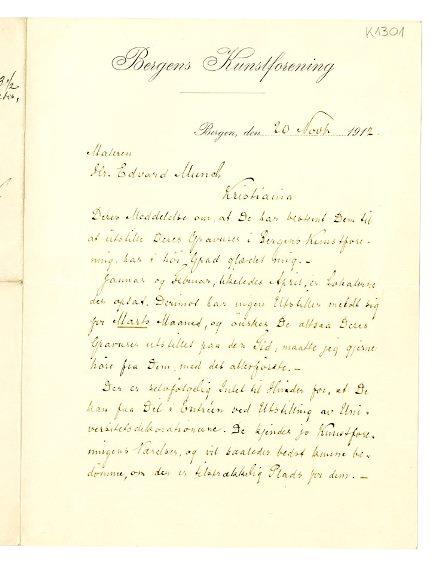 K1301
Bergens Kunstforening
Bergen, den 20 Novb 1912
Maleren
Hr. Edvard Munch
Kristiania
Deres Meddelelse om, at De har bestemt Dem til
at utstille Deres Gravurer i Bergens Kunstfore-
ning, har i høi Grad glædet mig. –
Januar og Februar, likeledes April, er Lokalerne
der optat. Derimot har ingen Utstiller meldt sig
for Marts Maaned, og ønsker De altsaa Deres
Gravurer utstillet paa den Tid, maatte jeg gjerne
høre fra Dem, med det allerførste. –
Der er selvfølgelig Intet til Hinder for, at De
kan faa Del i Entréen ved Utstilling av Uni-
versitetsdekorationerne. De kjender jo Kunstfore-
ningens Værelser, og vil saaledes bedst kunne be-
dømme, om den er tilstrækkelig Plads for dem. –